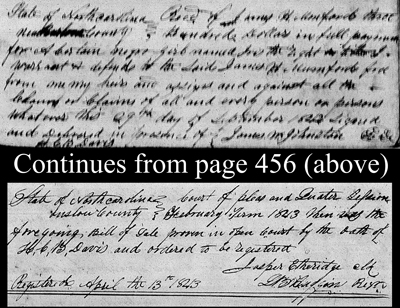 State of North carolina Recd of James H Mumford three
County Hundred Dollars in full payment
for A Certain negro girl named the
warrant & defend to the Said James H Mumford free
from me my heirs and assigns and against all the
Claims or Claims of all and every person or persons
whatever this 29th day of September Signed
and Delivered in presence of James W Johnston
H C B Davis
Continues from page 456 (above)
State of North carolina Court of pleas and Quater Session
onslow County February Term 1843 then was the
foregoing Bill of Sale proven in open Court by the oath of
H C B Davis and ordered to be registered
Jasper Etheridge Clk
Registered April the 13th 1843 Regr